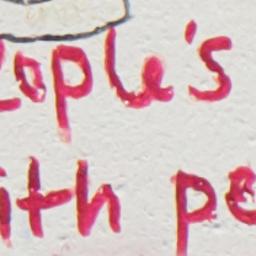 eople's
ith pe